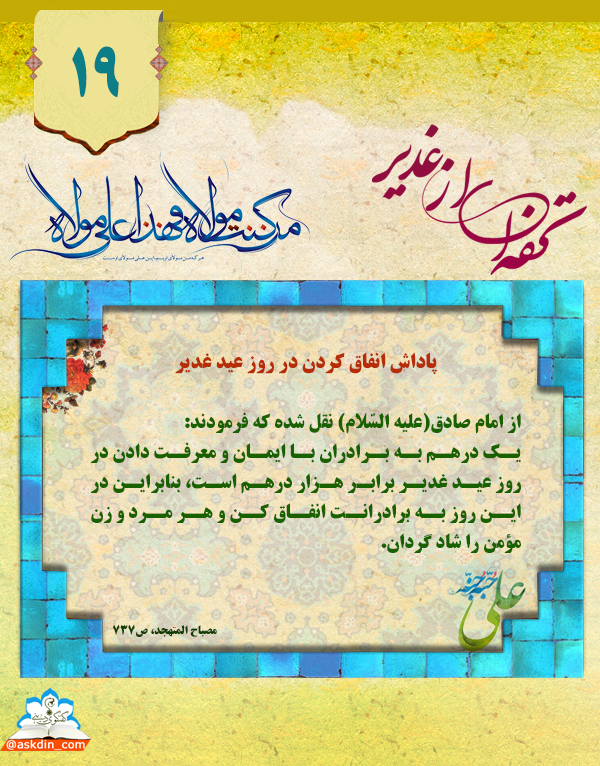 ۱۹
تحفه‌ای از غدیر
من کنت مولاه و هذا علی مولاه
هر که من مولای اویم این علی مولای اوست
پاداش انفاق کردن در روز عید غدیر
از امام صادق(علیه السّلام) نقل شده که فرمودند:
یک درهم به برادران با ایمان و معرفت دادن در
روز عید غدیر برابر هزار درهم است، بنابراین در
این روز به برادرانت انفاق کن و هر مرد و زن
مؤمن را شاد گردان.
علی حبه جنة
مصباح المتهجد، ص۷۳۷
@askdin_com